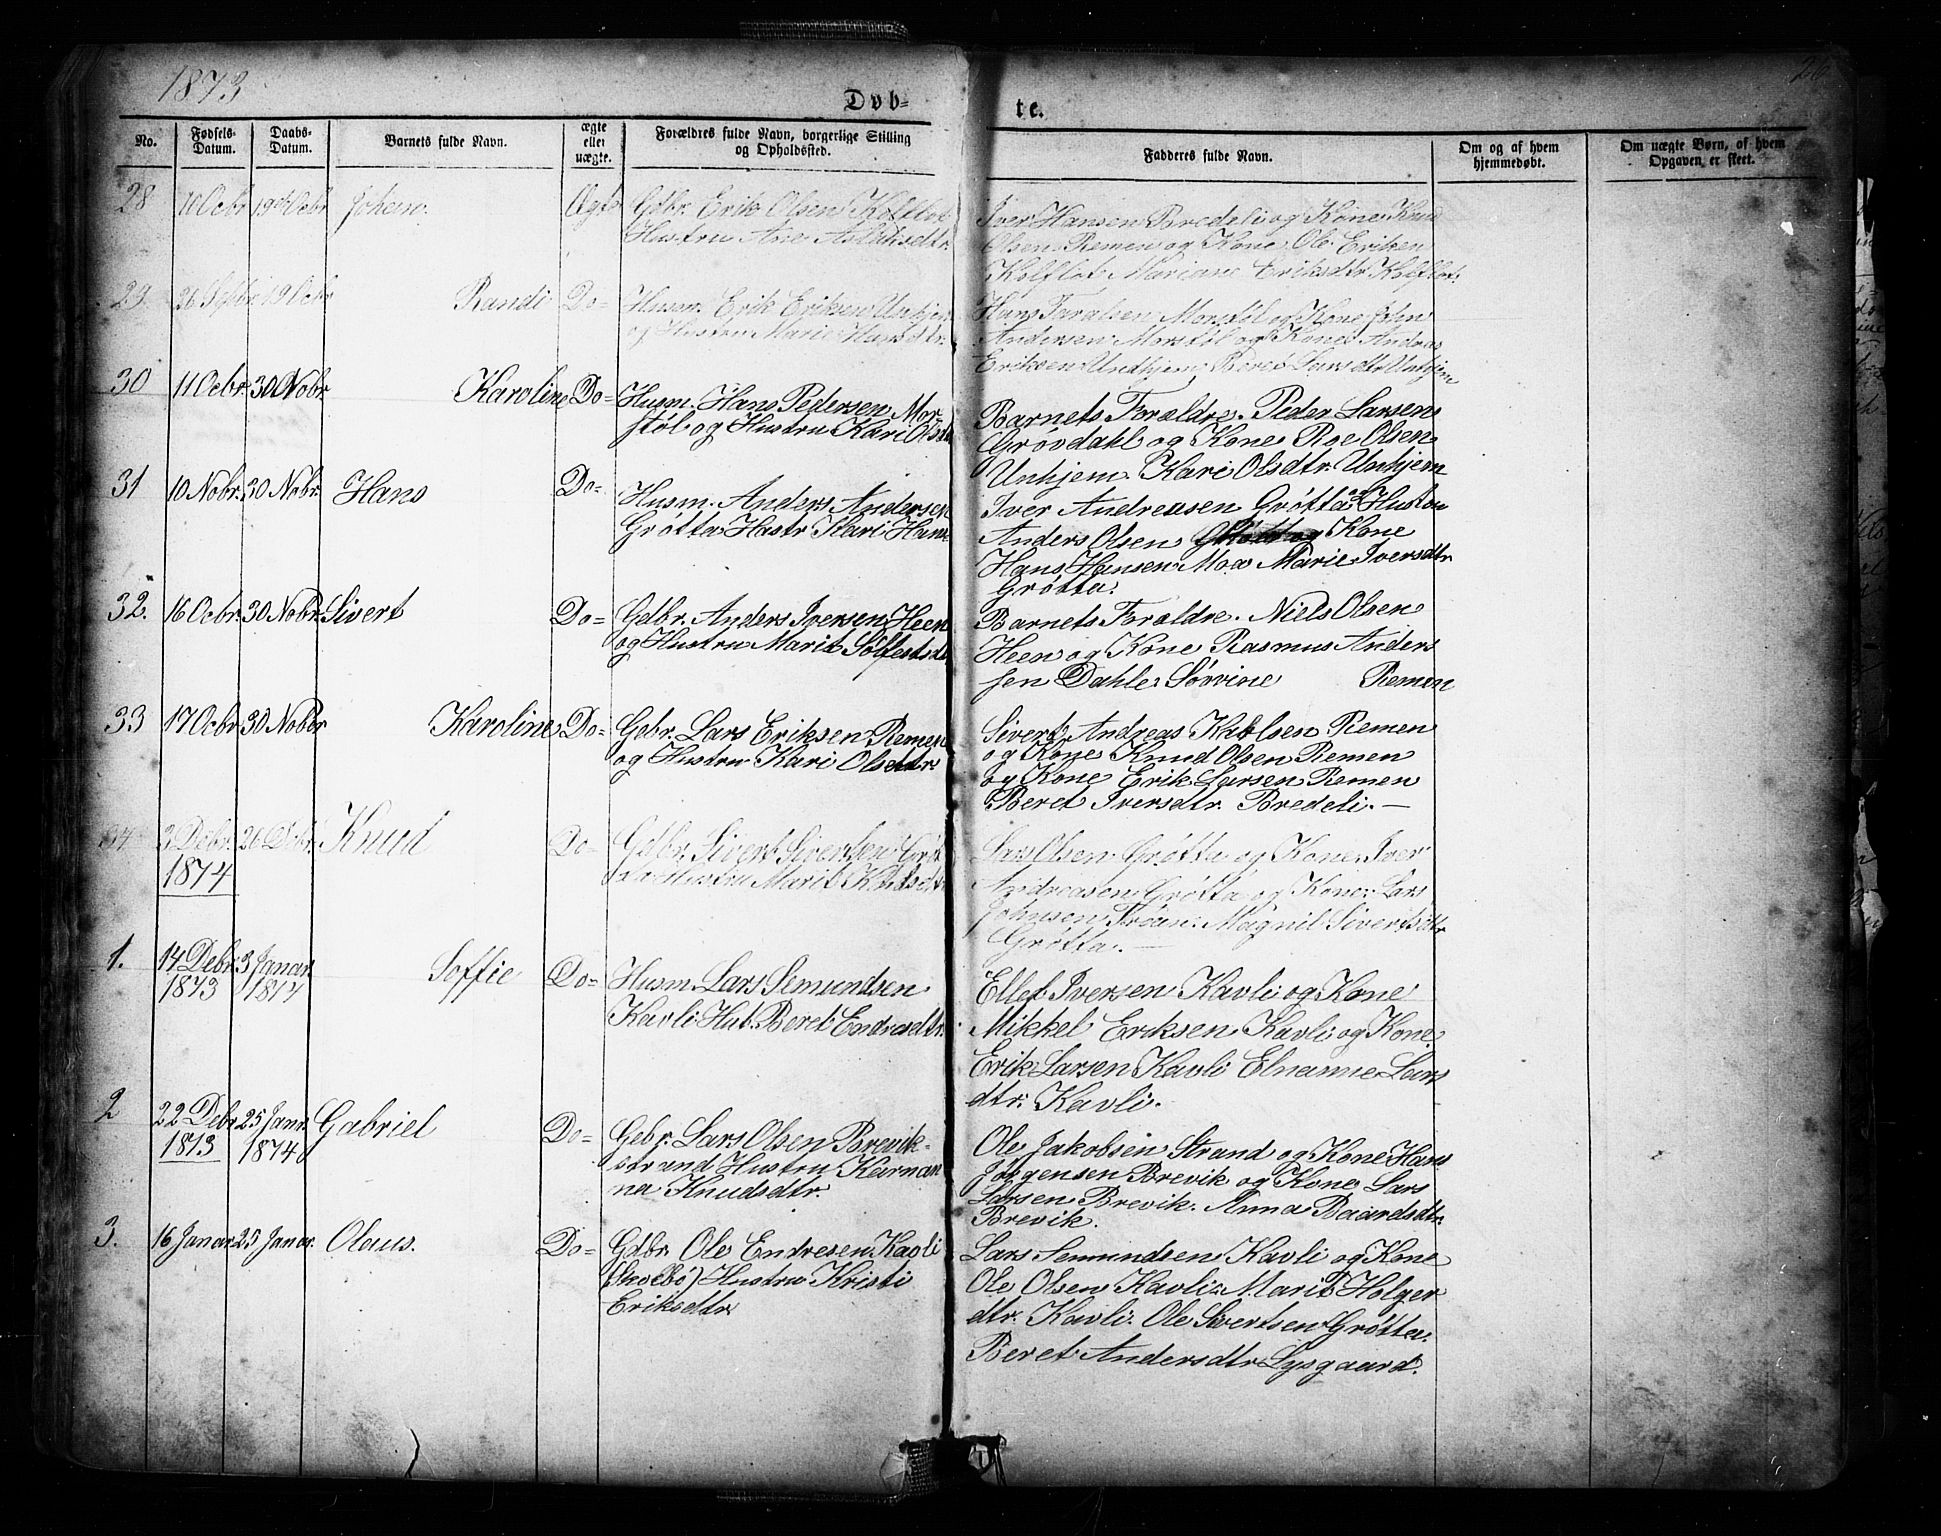 1873
26
Døb-
te.
No.
Fødsels-
Datum.
Daabs-
Datum.
Barnets fulde Navn.
ægte
eller
uægte.
Forældres fulde Navn, borgerlige Stilling
og Opholdssted.
Fadderes fulde Navn.
Om og af hvem
hjemmedøbt.
Om uægte Børn, af hvem
Opgaven er skeet.
28 10 Ocbr 19de Ocbr Johan. Ægte Gdbr. Erik Olsen Kolflot
Hustru Ane Aslaksdtr.
Iver Hansen Bredeli og Kone. Knud
Olsen Remen og Kone. Ole Eriksen
Kolflot Mariane Eriksdtr Kolflot.
29. 26 Sptbr 19 Ocbr Randi Do= Husm. Erik Eriksen Unhjem
og Hustru Marie Hansdtr.
Hans Taralsen Morstøl og Kone. John
Andersen Morstøl og Kone. Andreas
Eriksen Undhjem. Beret Larsdtr Unhjem
30 11 Ocbr. 30 Nobr. Karoline Do= Husm. Hans Pedersen Mor-
støl og Hustru Kari Olsdtr
Barnets Forældre. Peder Larsen
Grøvdahl og Kone Roe Olsen
Unhjem. Kari Olsdtr. Unhjem
31 10 Nobr. 30 Nobr. Hans Do= Husm. Anders Andersen
Grøtta Hustr Kari Hans
Iver Andreasen Grøtta og Hustru
Anders Olsen og Kone
Hans Hansen Moa Marie Iversdtr
Grøtta.
32. 16 Ocbr. 30 Nobr. Sivert Do= Gdbr. Anders Iversen Heen
og Hustru Marit Solfestsdtr
Barnets Forældre. Niels Olsen
Heen og Kone Rasmus Anders
sen Dahle. Sørvine Remen
33 17 Ocbr. 30 Nobbr Karoline Do= Gebr. Lars Eriksen Remen
og Hustru Kari Olsdtr
Sivert Andreas Remen
og Kone Knud Olsen Remen
og Kone Erik Larsen Remen
Beret Iversdtr. Bredeli.—
34 3 Debr. 26 Debr. Knud Do= Gdbr. Sivert Sivertsen Grøt
ta Hustru Marit Knudsdtr
Lars Olsen Grøtta og Kone. Iver
Andreasen Grøtta og Kone. Lars
Johnsen Trøan. Magnil Sivertsdtr
Grøtta.—
1874
1. 14 Debr. 3 Januar. Soffie Do= Husm. Lars Semundsen
1873 1874 Kavli Hut. Beret Endresdtr.
Ellef Iversen Kavli og Kone
Mikkel Eriksen Kavli og Kone.
Erik Larsen Kavli Elnanne Lars
dtr: Kavli.
2 22 Debr. 25 Janr. Gabriel Do= Gebr. Lars Olsen Brevik-
1873 1874 strand Hustru Karnan
na Knudsdtr.
Ole Jakobsen Strand og Kone Hans
Jørgensen Brevik og Kone. Lars
Larsen Brevik. Anna Baardsdtr.
Brevik.
3. 16 Januar 25 Januar. Olaus. Do= Gdbr. Ole Endresen Kavli
Hustru Kristi
Eriksdtr
Lars Semundsen Kavli og Kone
Ole Olsen Kavli. Marit Holger
dtr. Kavli. Ole Sivertsen Grøtta.
Beret Andersdtr Lysgaard.